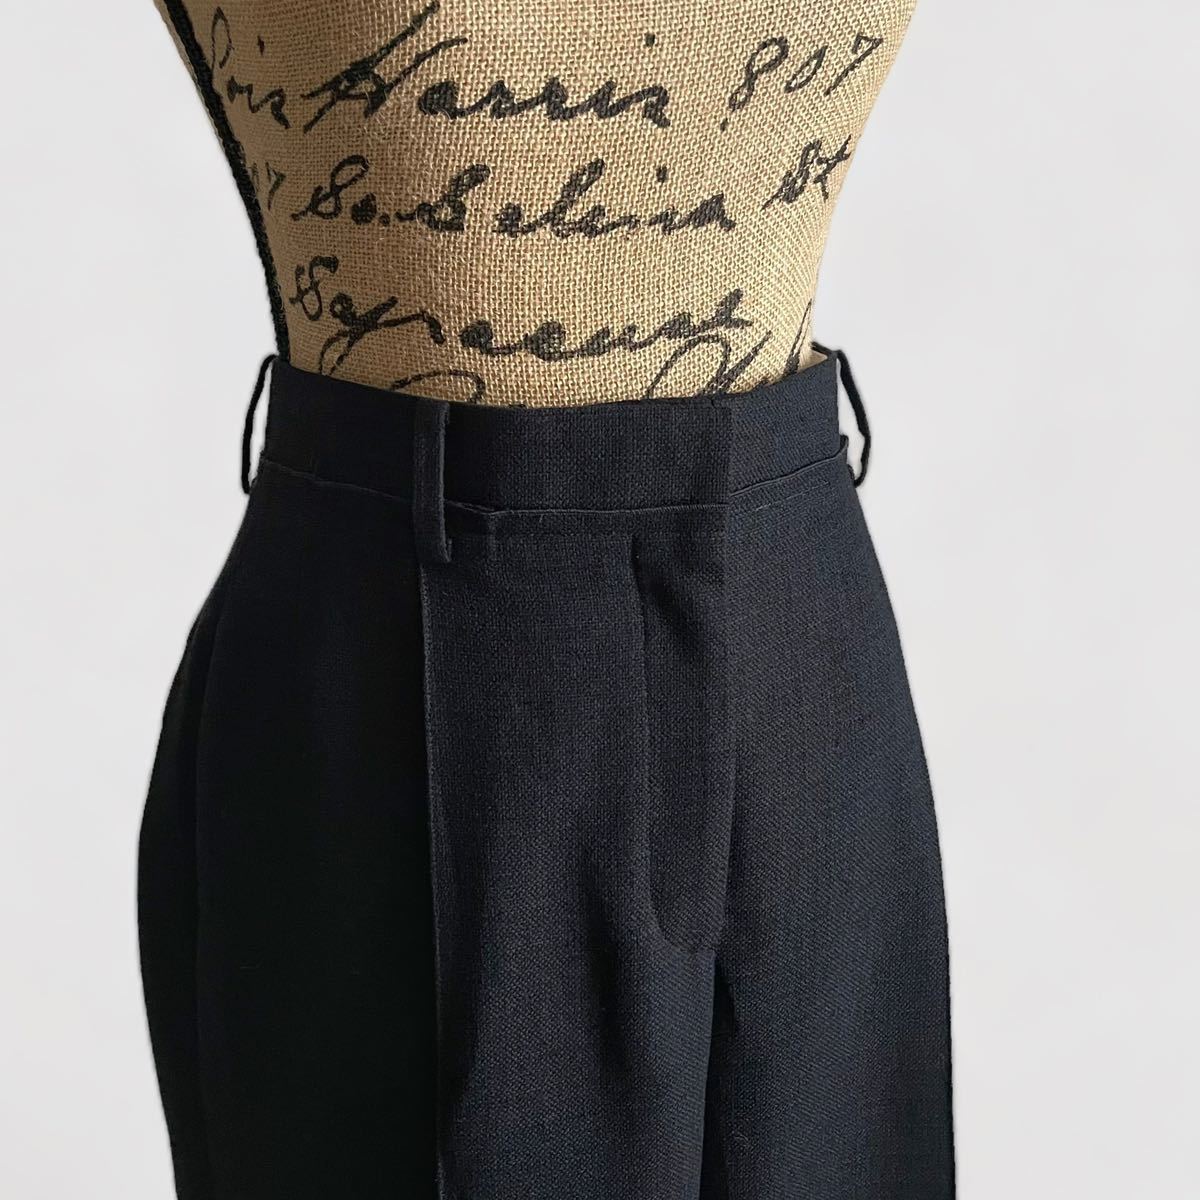 Lois Harris 807
07 So. Selina St
Syracuse